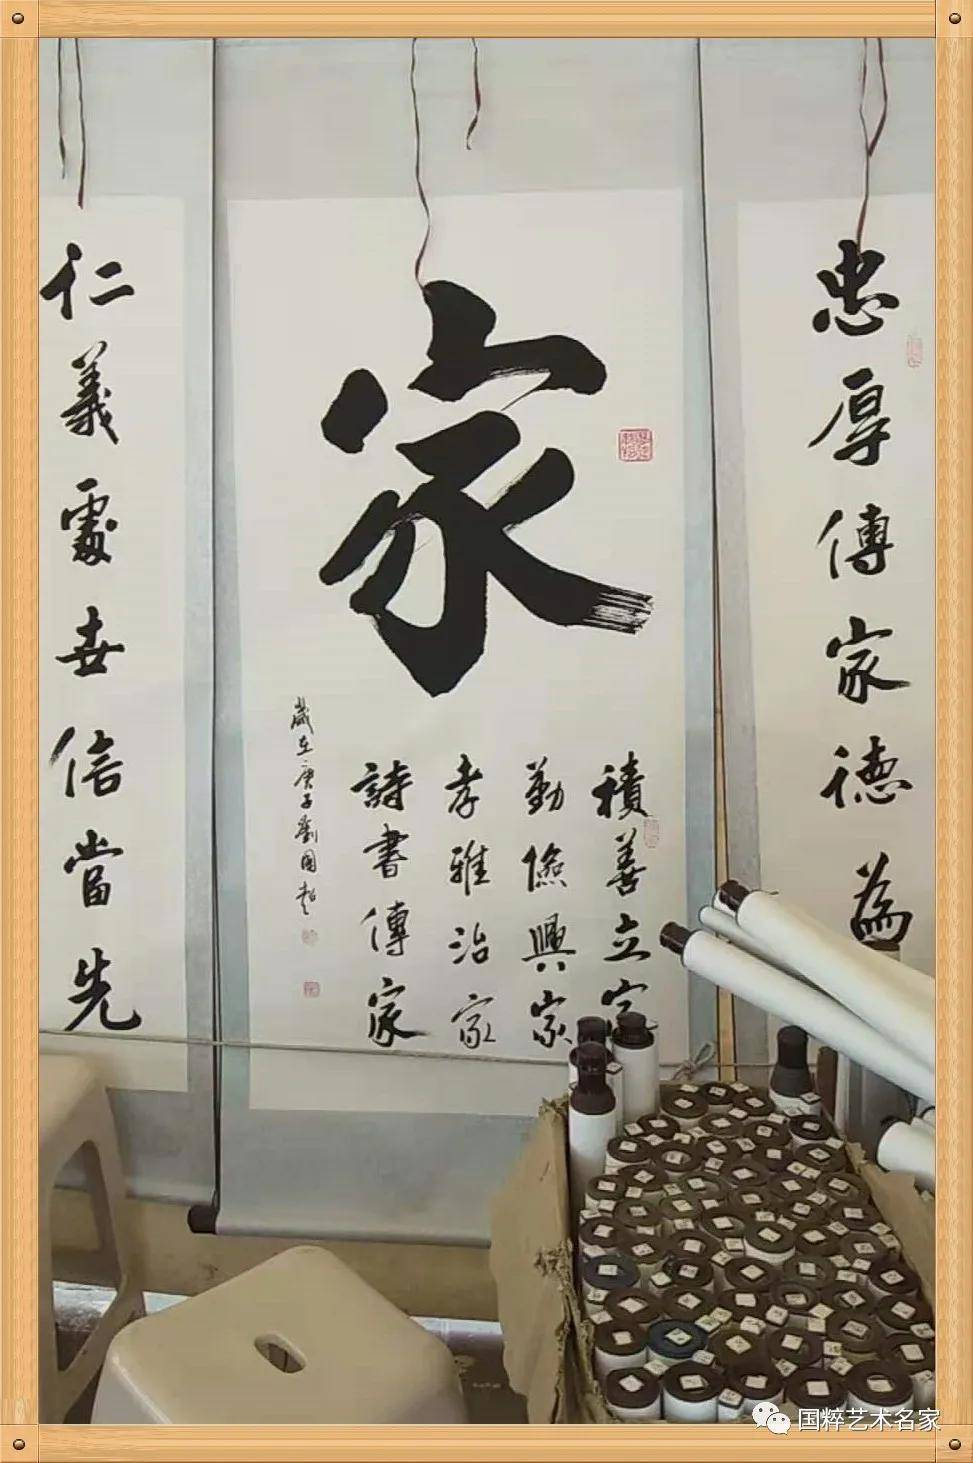 忠厚傳家德為
家
積善立家
勤儉興家
孝雅治家
詩書傳家
歲在庚子劉國超
仁義處世信當先
国粹艺术名家